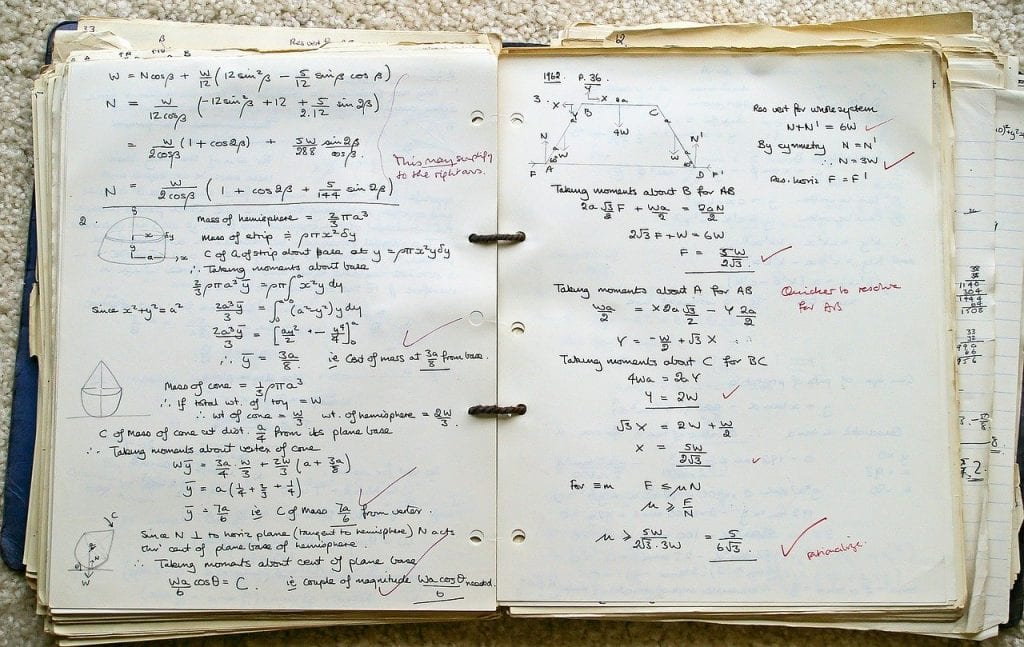 W = Ncosβ + W/12 (12 sin²β - 5/12 sinβ cosβ)
N = W/12cosβ (-12sin²β + 12 + 5/2.12 sin 2β)
= W/2cosβ (1 + cos2β) + 5W/288 sin2β/cosβ.
This may simplify
to the right ans.
N = W/2cosβ (1 + cos2β + 5/144 sin2β)
2.
Mass of hemisphere = 2/3 πa³
Mass of strip ≑ ρπx²δy
C of G of strip about base at y = ρπx²yδy
∴ Taking moments about base
2/3 ρπa³ȳ = ρπ∫₀ᵃ x²y dy
Since x²+y²=a² 2a³ȳ/3 = ∫₀ᵃ (a²-y²) y dy
2a³ȳ/3 = [ay²/2 + - y⁴/4]₀ᵃ
∴ ȳ = 3a/8 ie Cent of mass at 3a/8 from base.
Mass of cone = 1/3 ρπa³
∴ If total wt. of toy = W
∴ wt of cone = W/3 wt. of hemisphere = 2W/3.
C of Mass of cone at dist. a/4 from its plane base
∴ Taking moments about vertex of cone
Wȳ = 3a/4 . W/3 + 2W/3 (a + 3a/8)
ȳ = a(1/4 + 2/3 + 1/4)
ȳ = 7a/6 ie C of Mass 7a/6 from vertex.
Since N ⊥ to horiz plane (tangent to hemisphere) N acts
thro' cent of plane base of hemisphere.
∴ Taking moments about cent of plane base
Wa/6 cosθ = C. ie couple of magnitude Wa cosθ/6 needed.
1962 P. 36.
3.
Y
X X a
B C
4W
N N'
W W
F A D F'
Res vert for whole system
N+N' = 6W
By symmetry N = N'
∴ N = 3W
Res. horiz F = F'
Taking moments about B for AB
2a √3/2 F + Wa/2 = 2aN/2
2√3 F + W = 6W
F = 5W/2√3.
Taking moments about A for AB
Quicker to resolve
for AB
Wa/2 = X 2a √3/2 - Y 2a/2
Y = -W/2 + √3 X
Taking moments about C for BC
4Wa = 2a Y
Y = 2W
√3 X = 2W + W/2
X = 5W/2√3
For ≡m F ≤ μN
μ ≥ F/N
μ ≥ 5W/2√3.3W = 5/6√3.
rationalize.